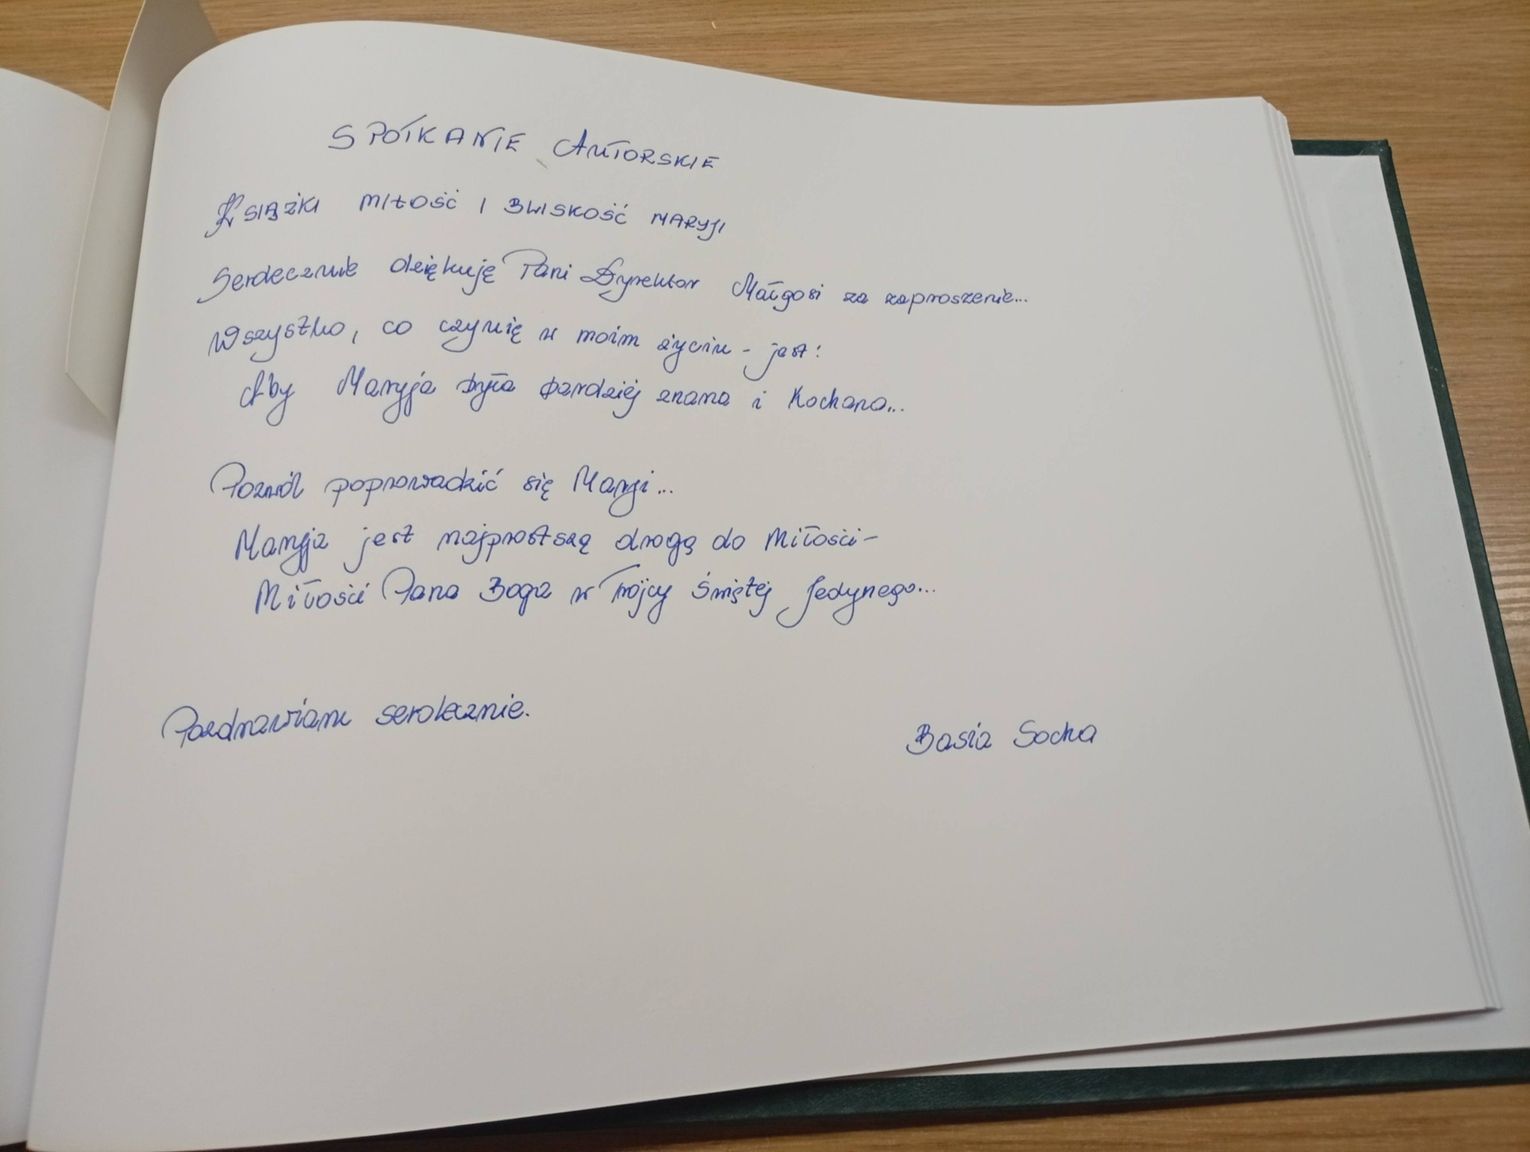 SPOTKANIE AUTORSKIE
KSIĄŻKI MIŁOŚĆ I BLISKOŚĆ MARYJI
Serdecznie dziękuję Pani Dyrektor Małgosi za zaproszenie...
Wszystko, co czynię w moim życiu - jest:
Aby Maryja była bardziej znana i kochana...
Pozwól poprowadzić się Maryi...
Maryja jest najprostszą drogą do Miłości-
Miłości Pana Boga w Trójcy Świętej Jedynego...
Pozdrawiam serdecznie.
Basia Socha